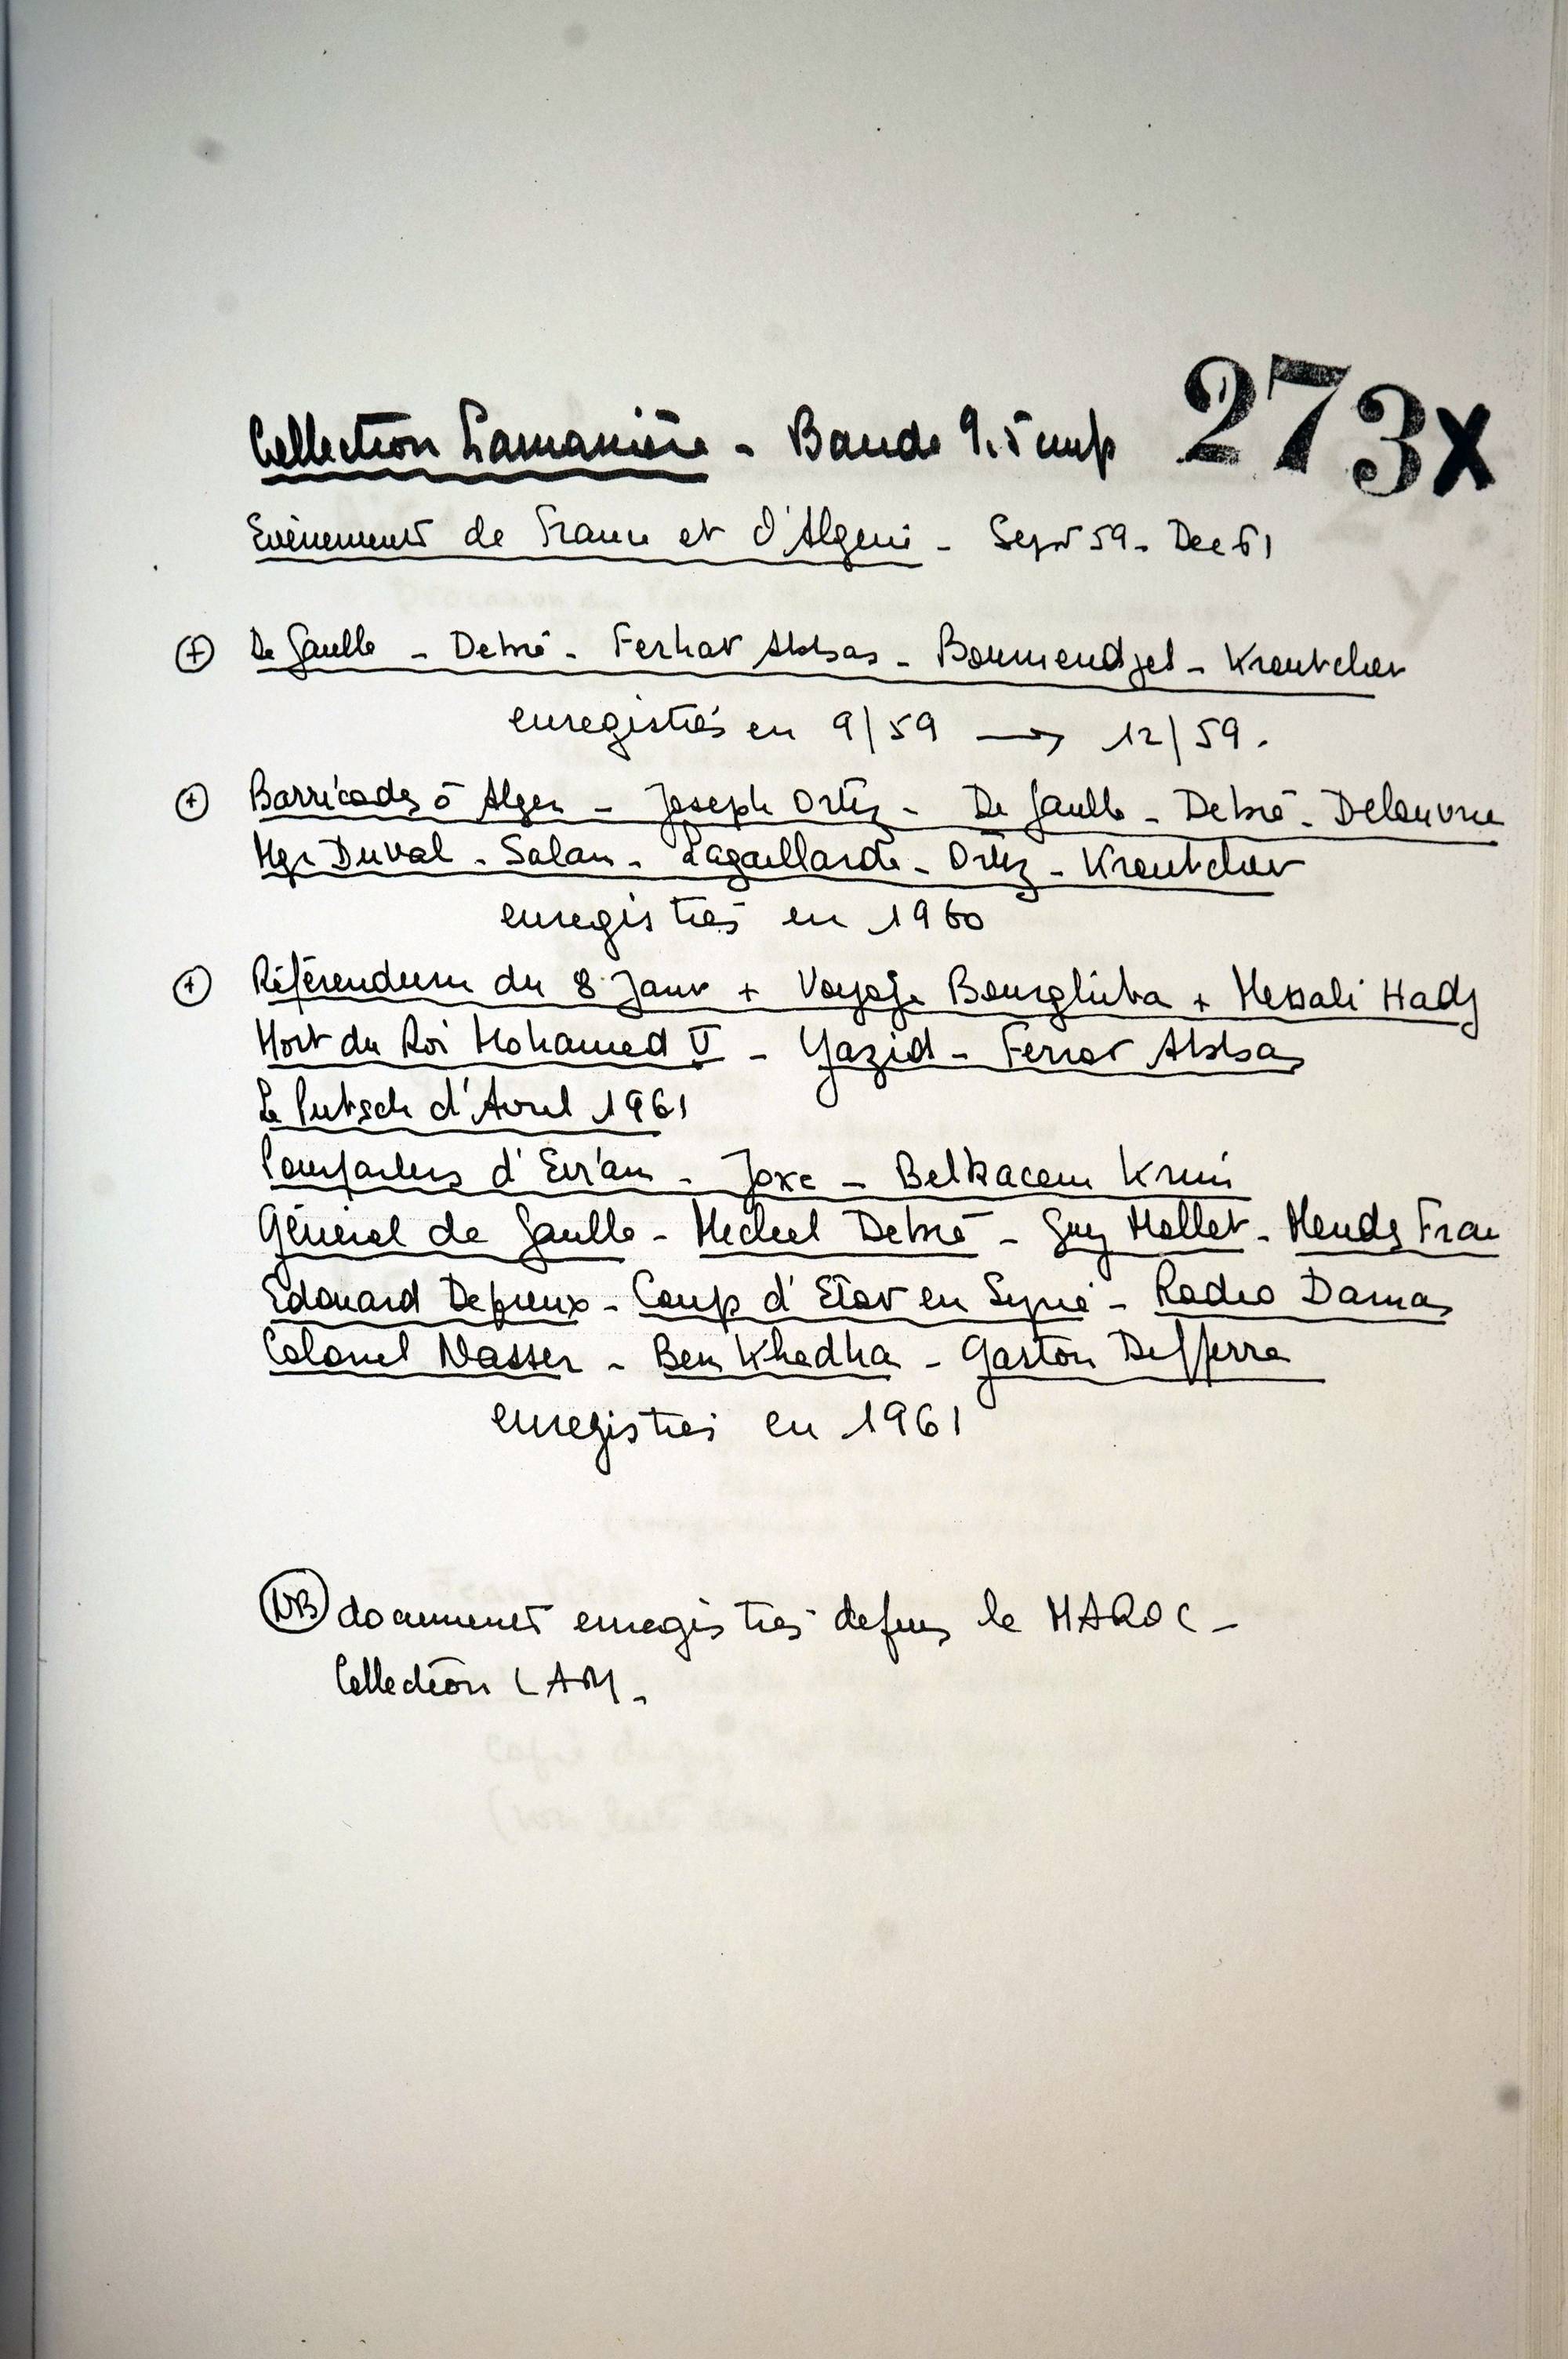 Collection Lamanière - Bande 9.5 cmp 273x
Evènements de France et d'Algerie - Sept 59 - Dec 61
+ De Gaulle - Debré - Ferhat Abbas - Boumendjel - Kroutchev
enregistrés en 9/59 → 12/59.
+ Barricades à Alger - Joseph Ortiz - De Gaulle - Debré - Delouvrie
Mgr Duval - Salan - Lagaillarde - Ortiz - Kroutchev
enregistrés en 1960
+ Référendum du 8 Janv + Voyage Bourghiba + Messali Hadj
Mort du Roi Mohamed V - Yazid - Ferrat Abbas
Le Putsch d'Avril 1961
Pourparlers d'Evian - Joxe - Belkacem Krim
Général de Gaulle - Michel Debré - Guy Mollet - Mendes Fran
Edouard Depreux - Coup d'Etat en Syrie - Radio Damas
Colonel Nasser - Ben Khedha - Gaston Defferre
enregistrés en 1961
NB documents enregistrés depuis le MAROC -
Collection LAM.